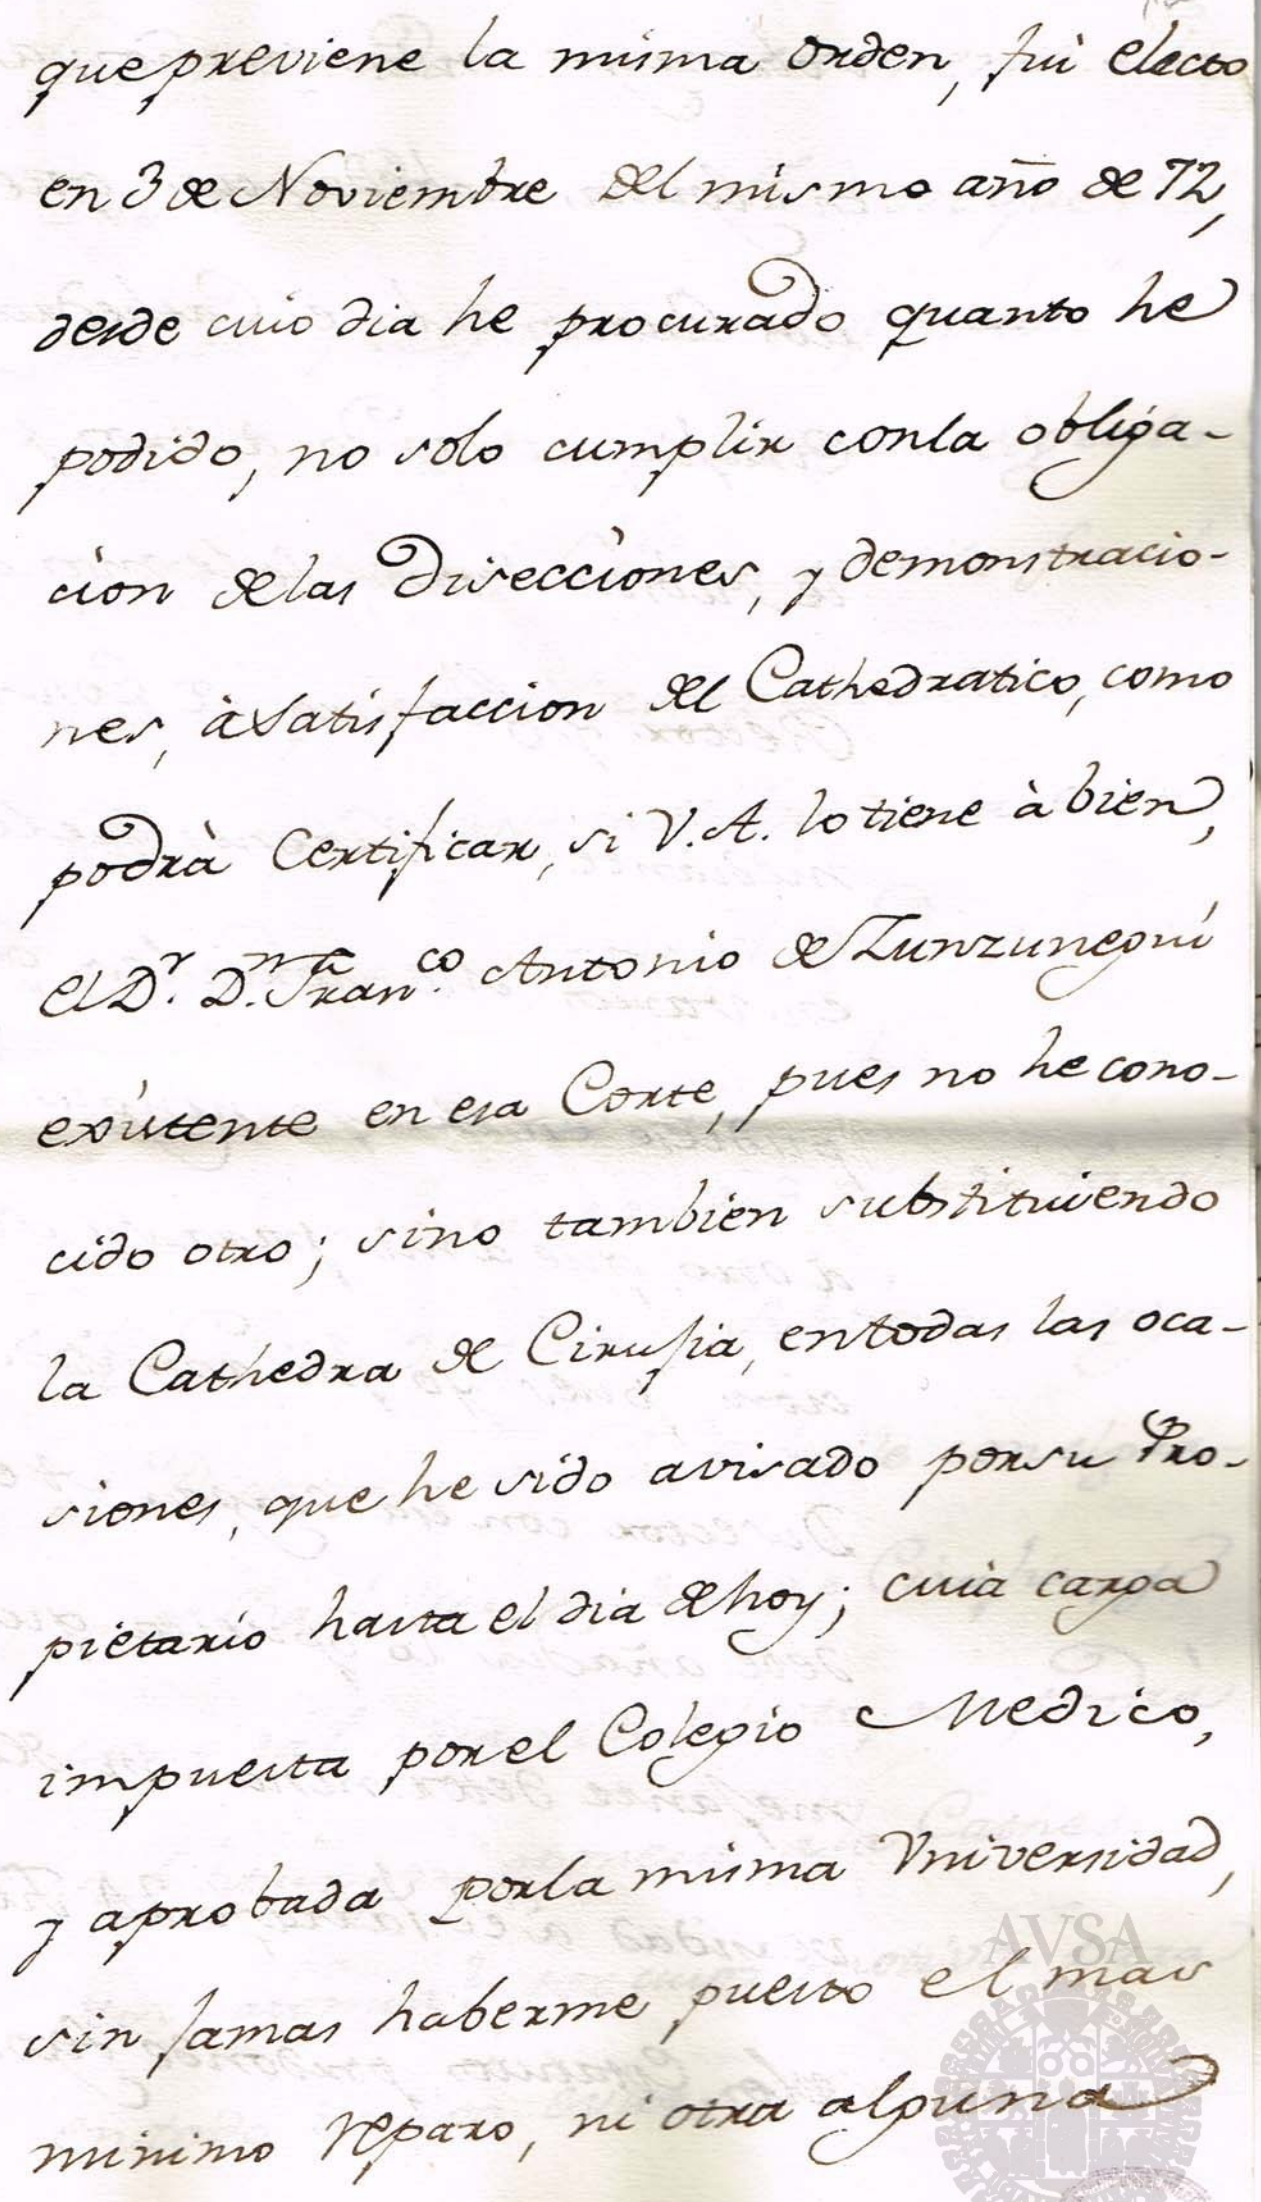 que previene la misma orden, fui electo
en 3 de Noviembre del mismo año de 72,
desde cuio dia he procurado quanto he
podido, no solo cumplir con la obliga-
cion de las Disecciones, y demonstracio-
nes, à satisfaccion del Cathedratico, como
podrà Certificar, si V.A. lo tiene à bien,
el Dr. Dn. Franco. Antonio de Zunzunegui
existente en esa Corte, pues no he cono-
cido otro; sino tambien substituiendo
la Cathedra de Cirujia, en todas las oca-
siones, que he sido avisado por su Pro-
pietario hasta el dia de hoy; cuia carga
impuesta por el Colegio Medico,
y aprobada por la misma Vniversidad,
sin jamas haberme puesto el mas
minimo reparo, ni otra alguna
AVSA